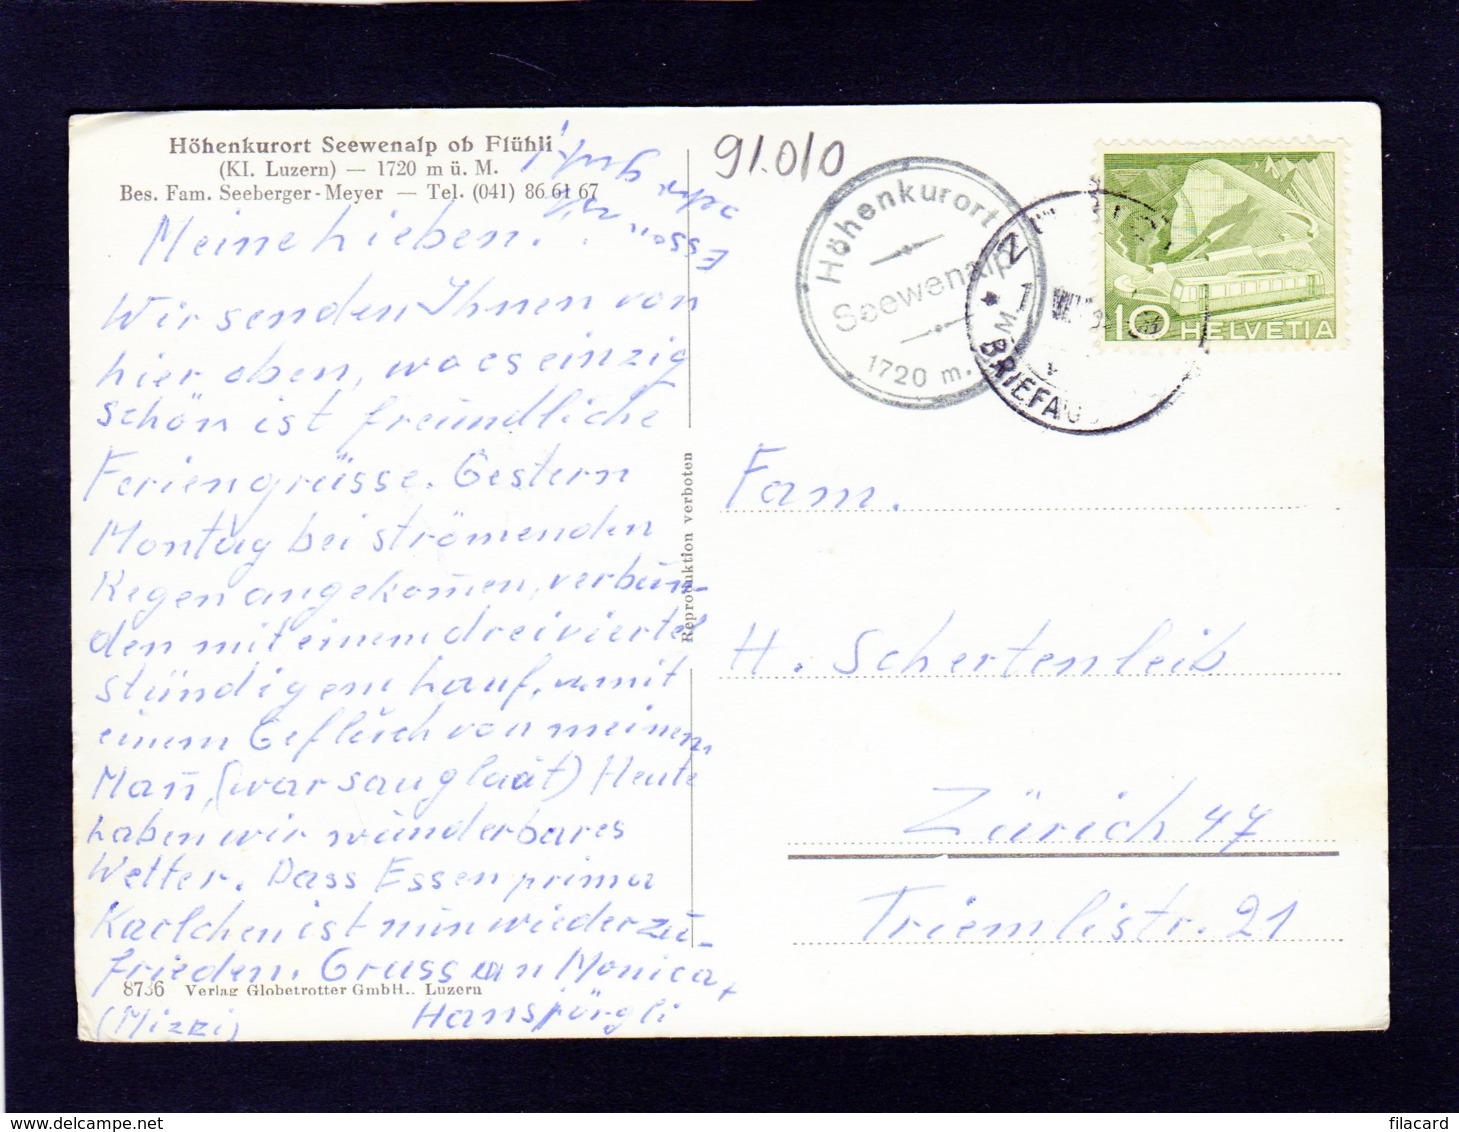 Höhenkurort Seewenalp ob Flühli
(Kt. Luzern) — 1720 m ü. M.
Bes. Fam. Seeberger-Meyer — Tel. (041) 86 61 67
Meine Lieben.
Wir senden Ihnen von
hier oben, wo es einzig
schön ist freundliche
Feriengrüsse. Gestern
Montag bei strömenden
Regen angekom̄en, verbun-
den mit einem dreiviertel
stündigem Lauf, u. mit
einem Geflüch von meinem
Man̄, (war sauglatt) Heute
haben wir wunderbares
Wetter. Dass Essen prima
Karlchen ist nun wieder zu-
frieden. Gruss an Monica +
(Mizzi) Hansjörgli
8736 Verlag Globetrotter GmbH., Luzern
Reproduktion verboten
91.010
Höhenkurort
Seewenalp
1720 m.
BRIEFAUS
10 HELVETIA
Fam.
H. Schertenleib
Zürich 47
Triemlistr. 21
filacard
www.delcampe.net